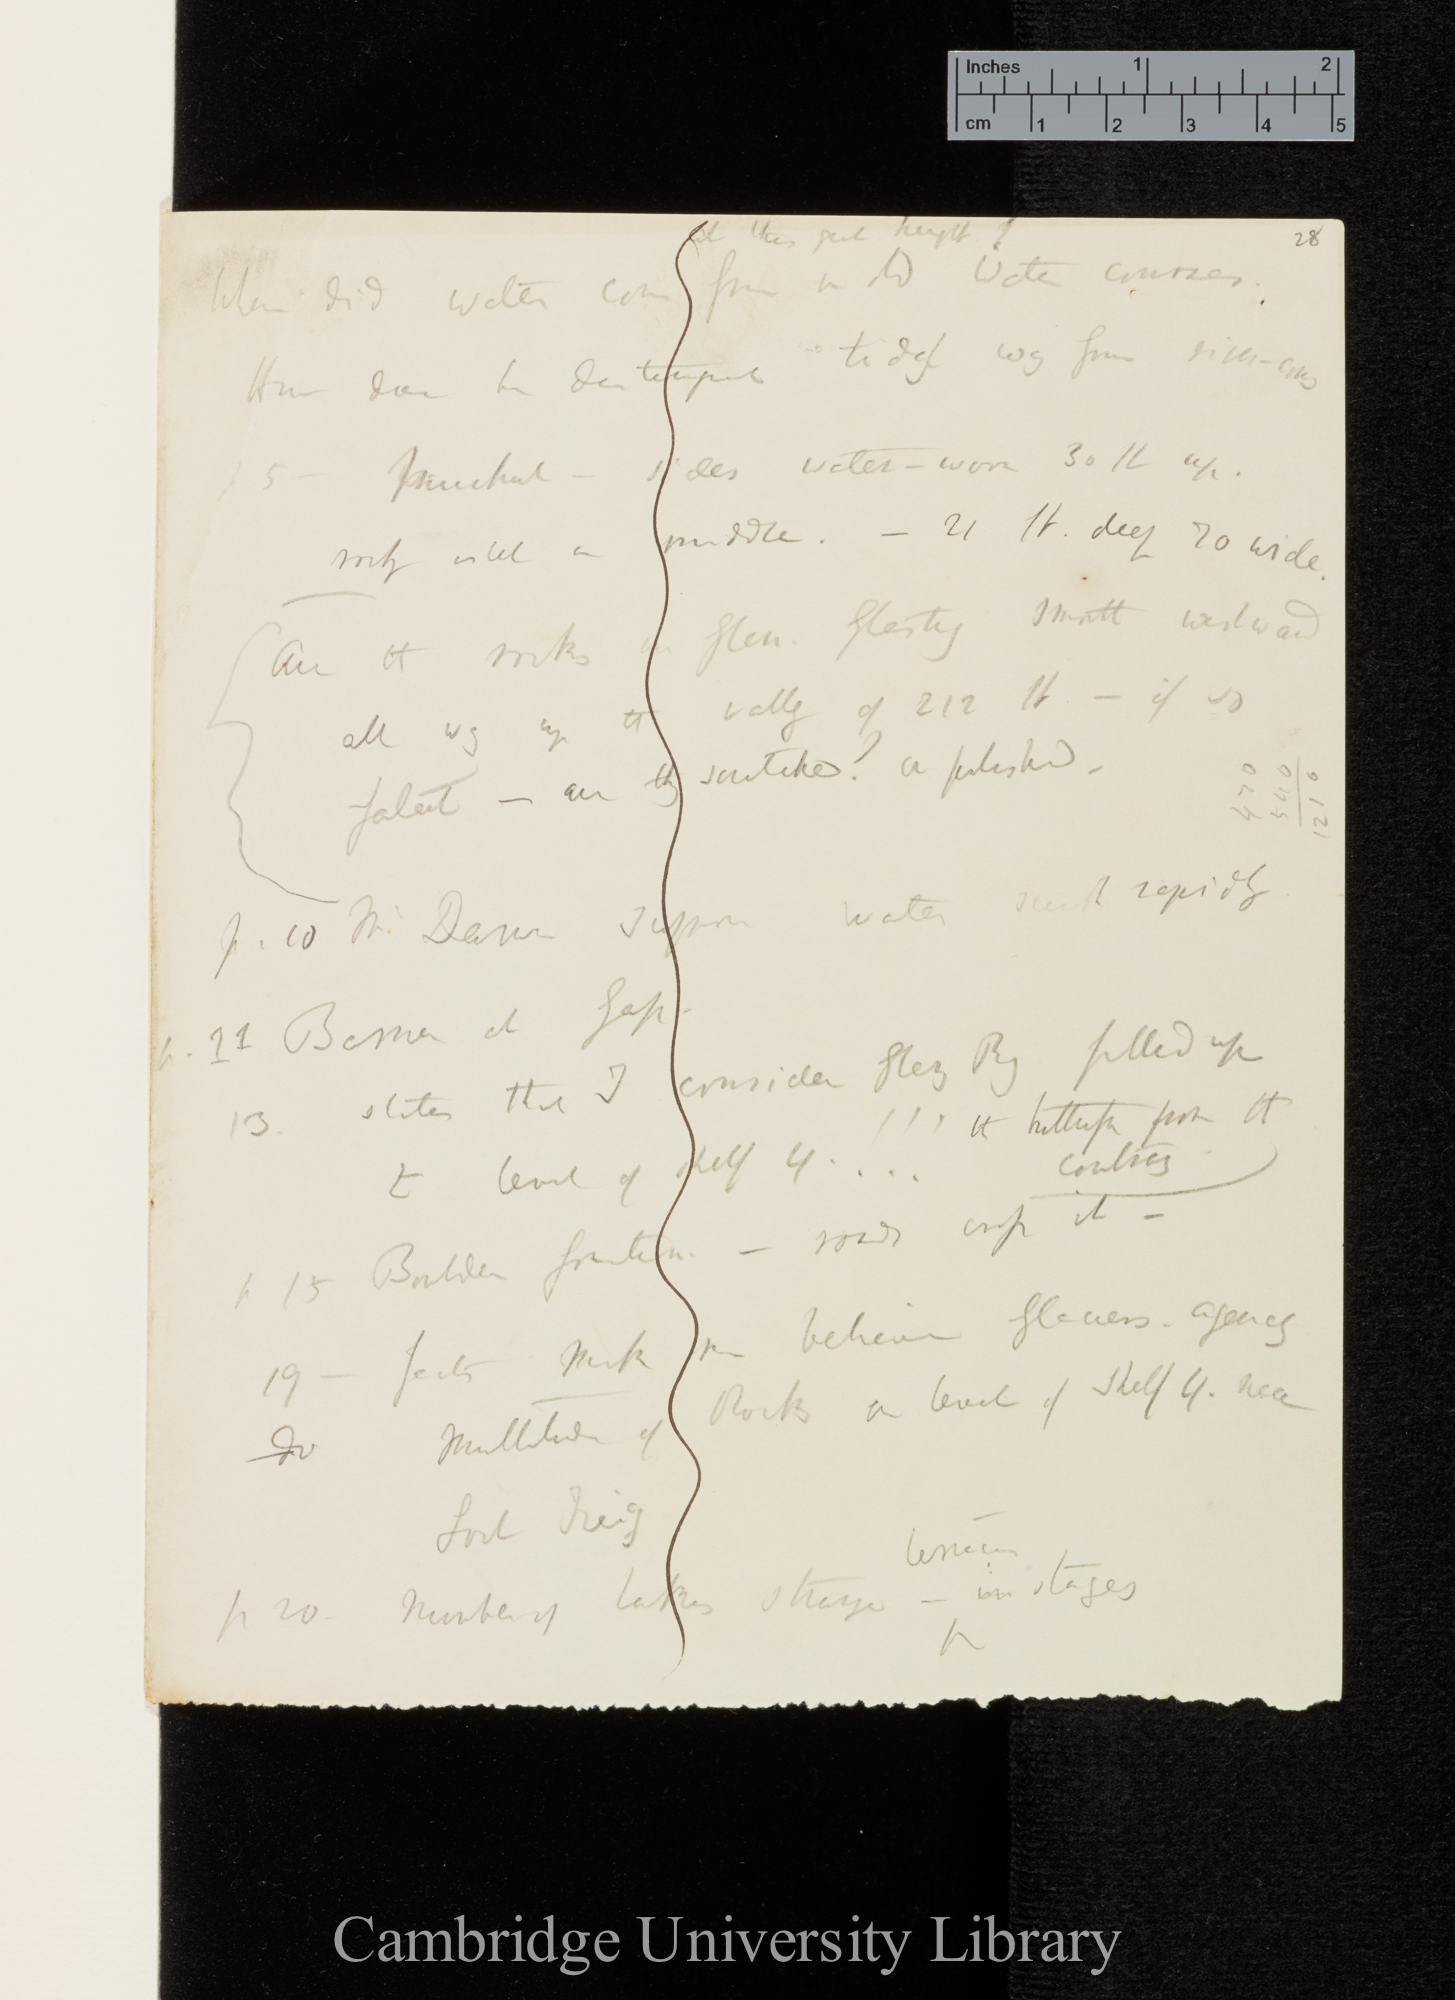 Inches 1 2
cm 1 2 3 4 5
28
at this great height?
Where did water come from in old Water courses.
How does he way from river-
p 5 — — sides water-worn 30 ft up.
rocky islet in middle. — 21 ft. deep 70 wide.
Are the rocks in Glen. Glastig smooth westward
all way up the valley of 212 ft — if so
fatal — are they scratched? or polished.
470
540
1210
p. 10 Mr Darwin suppose water sunk rapidly
p. 11 Barrier at Gap.
13. states that I consider Glen Roy filled up
to level of shelf 4. . . . !!! the buttress from the
contrary
p 15 Boulder formation. — roads cross it —
19 — facts make me believe Glaciers. agency
Do Multitude of Rocks on level of Shelf 4. near
Loch Treig
p 20. Number of lakes strange — in stages
Cambridge University Library